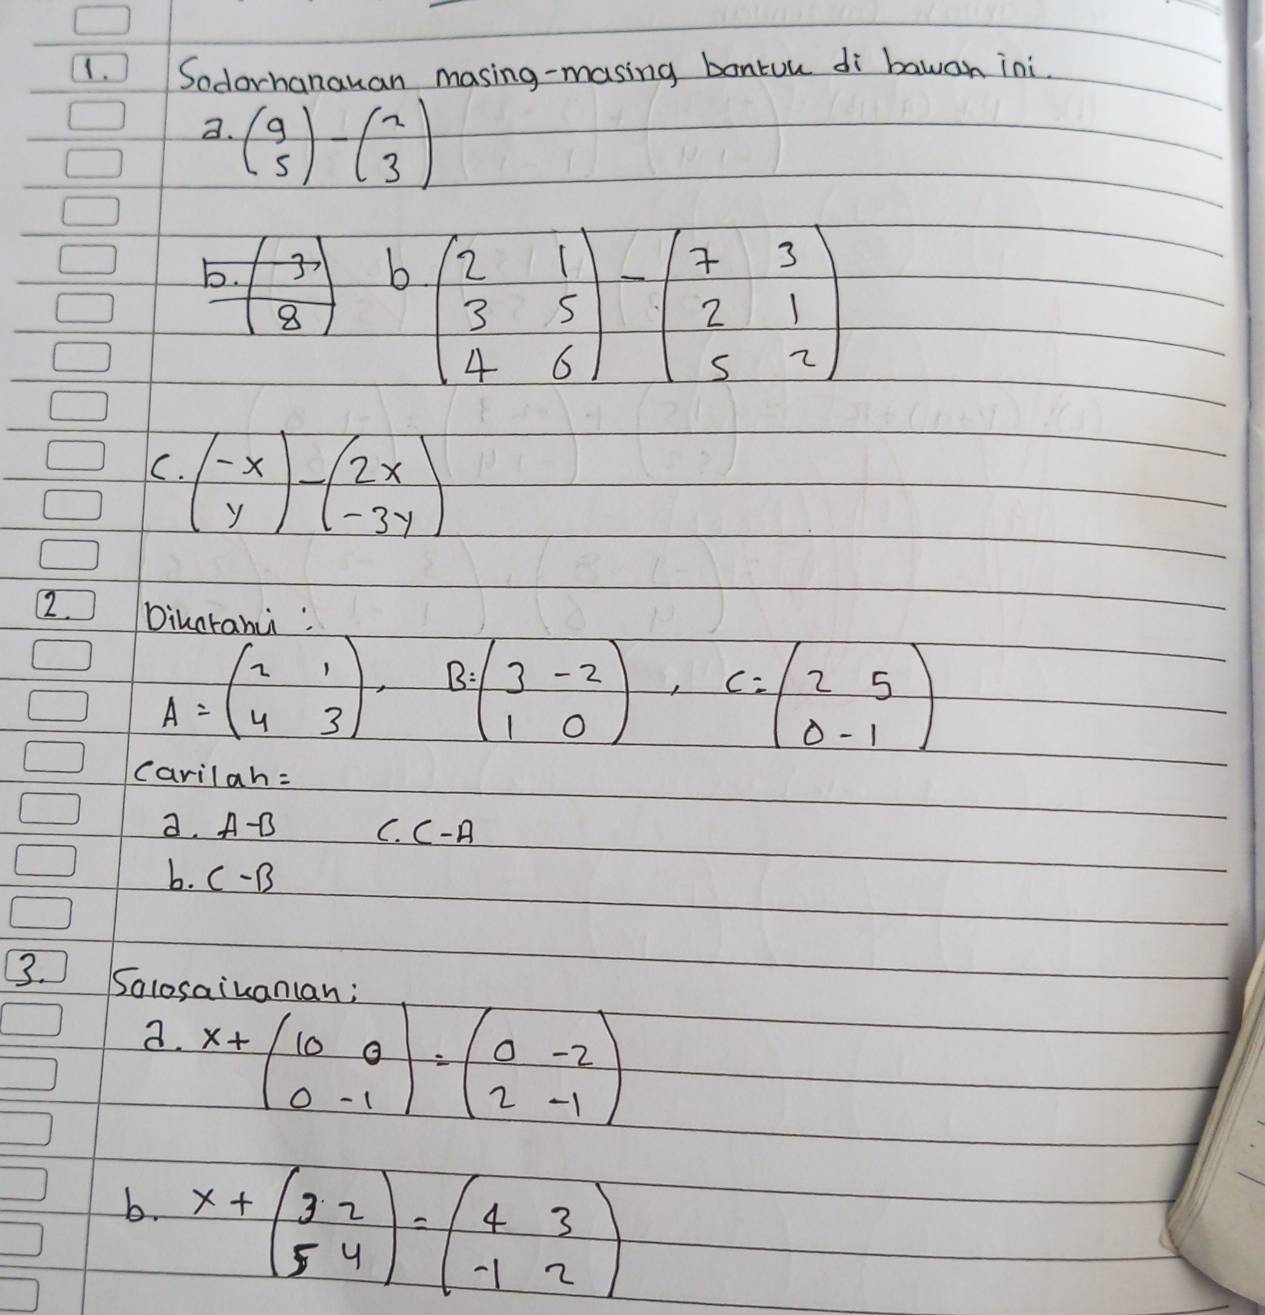 1. Sodorhanakan masing-masing bentuk di bawah ini.
a. (9 5) - (2 3)
b. (3 8) b. (2 1 3 5 4 6) - (7 3 2 1 5 2)
c. (-x y) - (2x -3y)
2. Diketahui :
A = (2 1 4 3), B = (3 -2 1 0), C = (2 5 0 -1)
Carilah =
a. A-B C. C-A
b. C-B
3. Selesaikanlah :
a. x + (10 0 0 -1) = (0 -2 2 -1)
b. x + (3 2 5 4) = (4 3 -1 2)